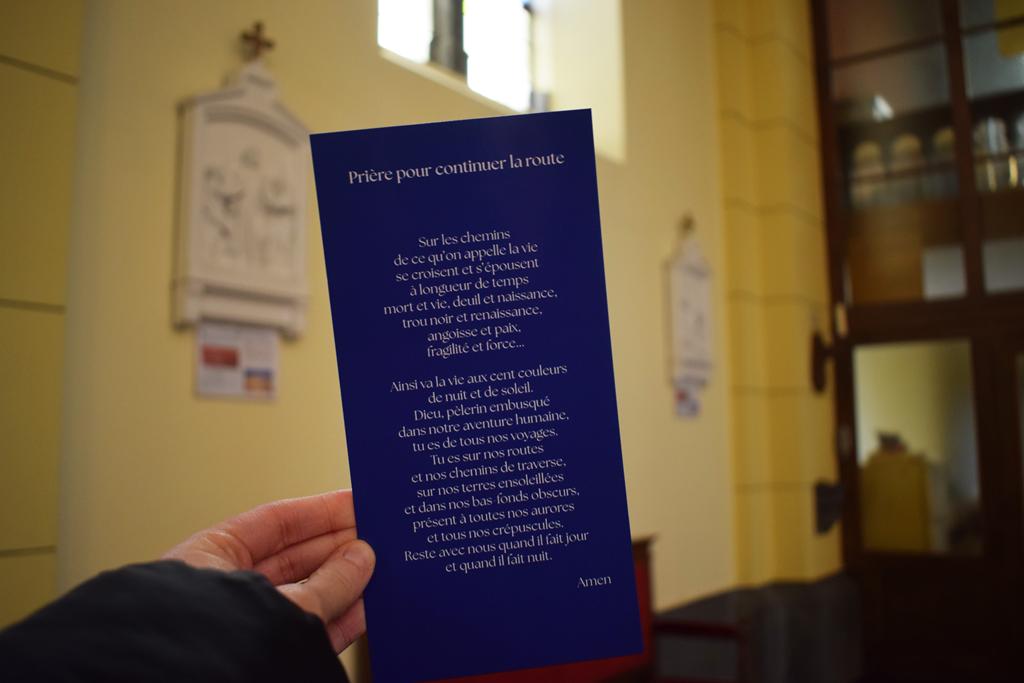 Prière pour continuer la route
Sur les chemins
de ce qu'on appelle la vie
se croisent et s'épousent
à longueur de temps
mort et vie, deuil et naissance,
trou noir et renaissance,
angoisse et paix,
fragilité et force...
Ainsi va la vie aux cent couleurs
de nuit et de soleil.
Dieu, pèlerin embusqué
dans notre aventure humaine,
tu es de tous nos voyages.
Tu es sur nos routes
et nos chemins de traverse,
sur nos terres ensoleillées
et dans nos bas-fonds obscurs,
présent à toutes nos aurores
et tous nos crépuscules.
Reste avec nous quand il fait jour
et quand il fait nuit.
Amen